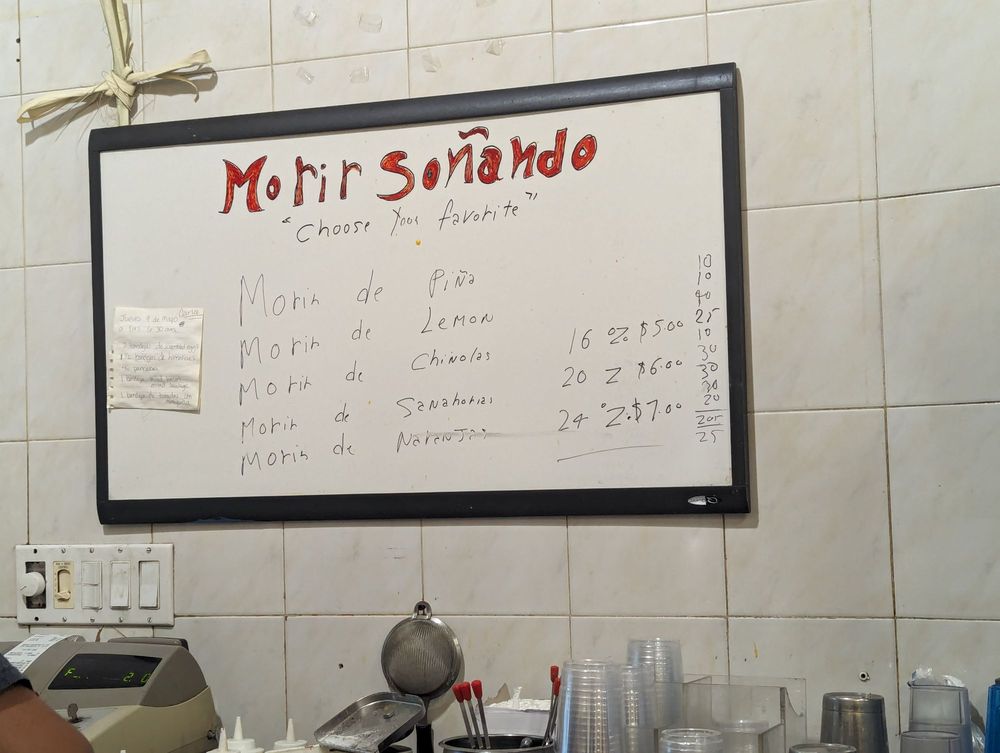 Morir Soñando
"Choose your favorite"
Morin de Piña
Morin de Lemon
Morin de Chinolas
Morin de Sanahorias
Morin de Naranjas
16 oz $5.00
20 z $6.00
24 oz. $7.00
10
10
40
25
10
30
30
30
20
205
25
Jueves 9 de Mayo